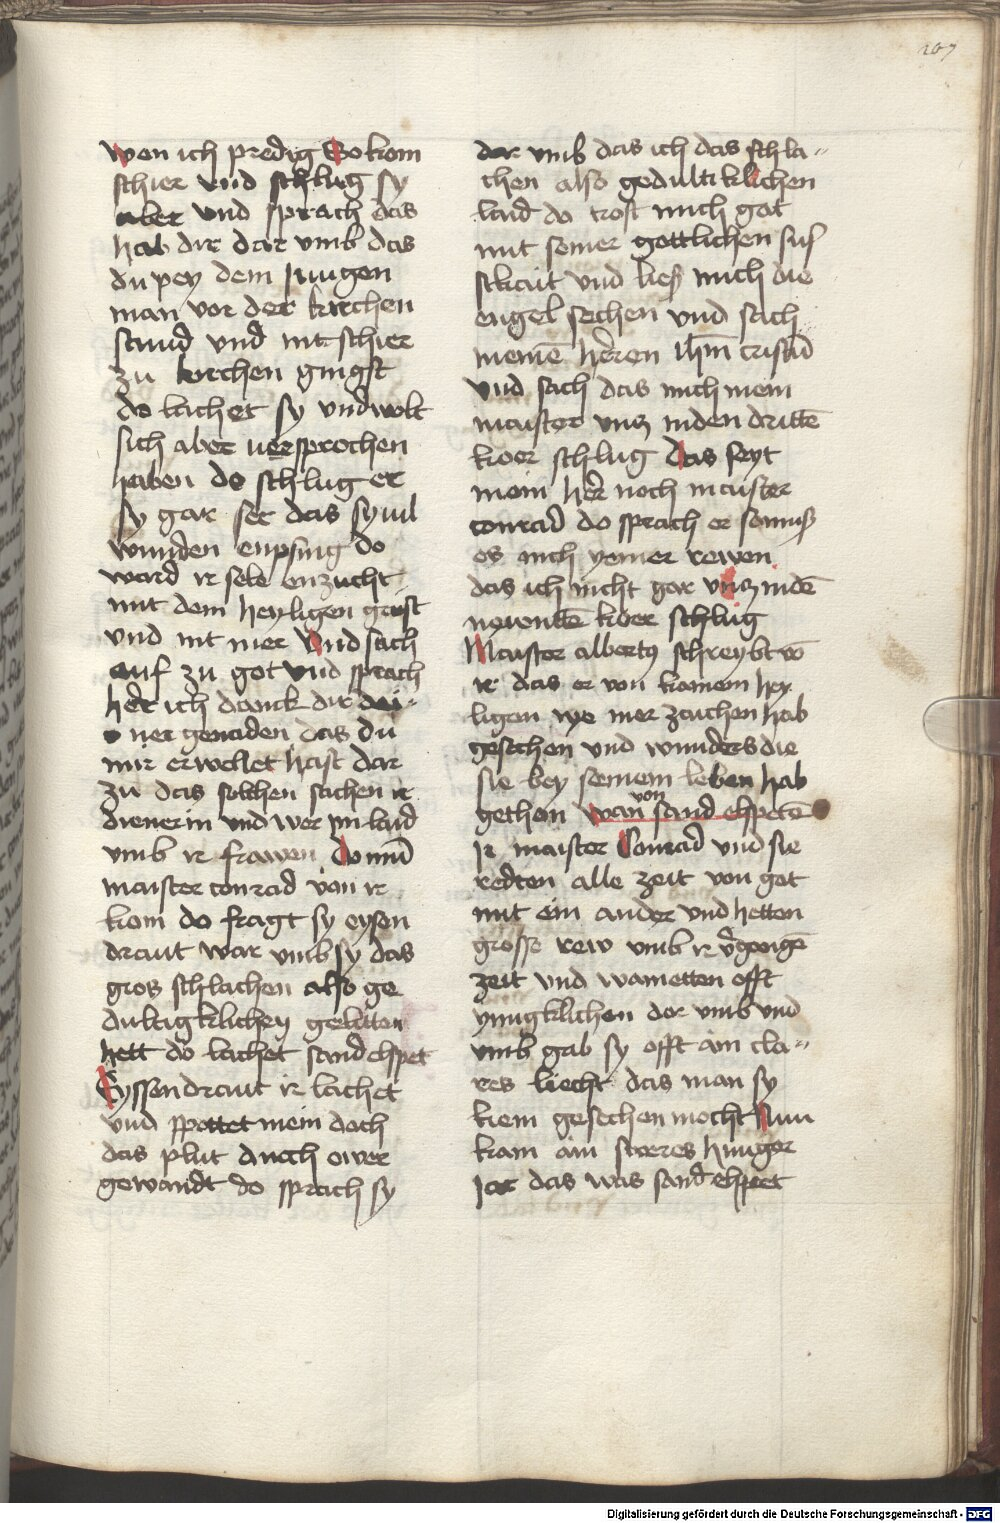 107
wen ich predig So kom
schier vnd schlug sy
aber vnd sprach das
hab dir dar vmb das
du pey dem Jungen
man vor der kirchen
stund vnd nit schier
zu kirchen gingst
do lachet sy vnd wolt
sich aber versprochen
haben do schlug er
sy gar ser das sy uil
wunden enpfing do
ward ir sele enzucht
mit dem heyligen gaist
vnd nit mer Vnd sach
auf zu got vnd sprach
her ich danck dir dei-
ner genaden das du
mir erwellet hast dar
zu das solchen sachen ir
dienerin vnd wer im laid
vmb ir frawen Do nū
maister conrad von ir
kom do fragt sy eysen
draut war vmb sy das
gros schlachen also ge
dultigklichen gelitten
hett do lachet sand elspet
Eyssendraut ir lachet
vnd spottet mein doch
das plut durch ewer
gewandt do sprach sy
dar vmb das ich das schla-
chen also gedultiklichen
laid do trost mich got
mit seiner gottlichen sus
sikait vnd lies mich die
engel sechen vnd sach
meinē herren Jhm cristū
vnd sach das mich mein
maister vnz in den drittē
koer schlug Das seyt
mein her noch maister
conrad do sprach er so mus
es mich ymer rewen
das ich nicht gar vnz in dē
newntē koer schlug
Maister albertus schreybt vō
ir das er von kainem hey
ligen nye mer zaichen hab
gesechen vnd wunders die
sie bey seinem leben hab
gethon wan von sand elspetē
Jr maister Conrad vnd sie
redten alle zeit von got
mit ein ander vnd hetten
grosse rew vmb ir vergangē
zeit vnd wainetten offt
ynnigklichen dor vmb vnd
vmb gab sy offt ain cla-
res liecht das man sy
kiem gesechen mocht Nun
kam ain sweres hunger
Jar das was sand elspet
Digitalisierung gefördert durch die Deutsche Forschungsgemeinschaft - DFG